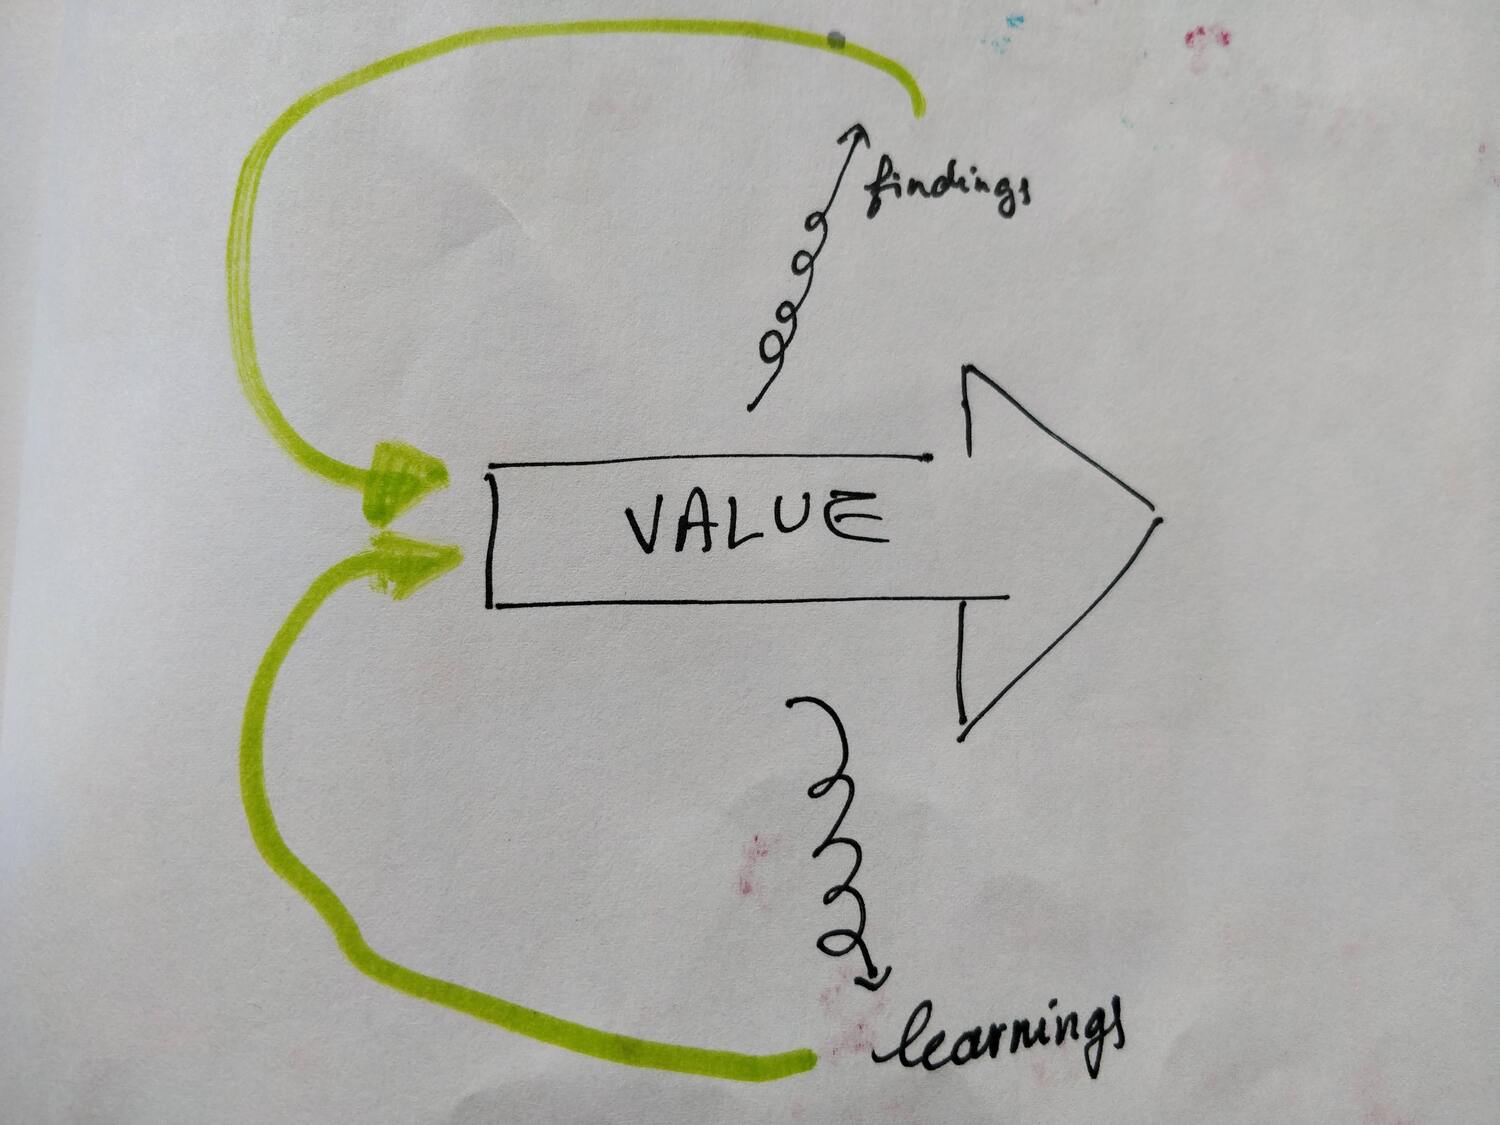 findings
VALUE
learnings